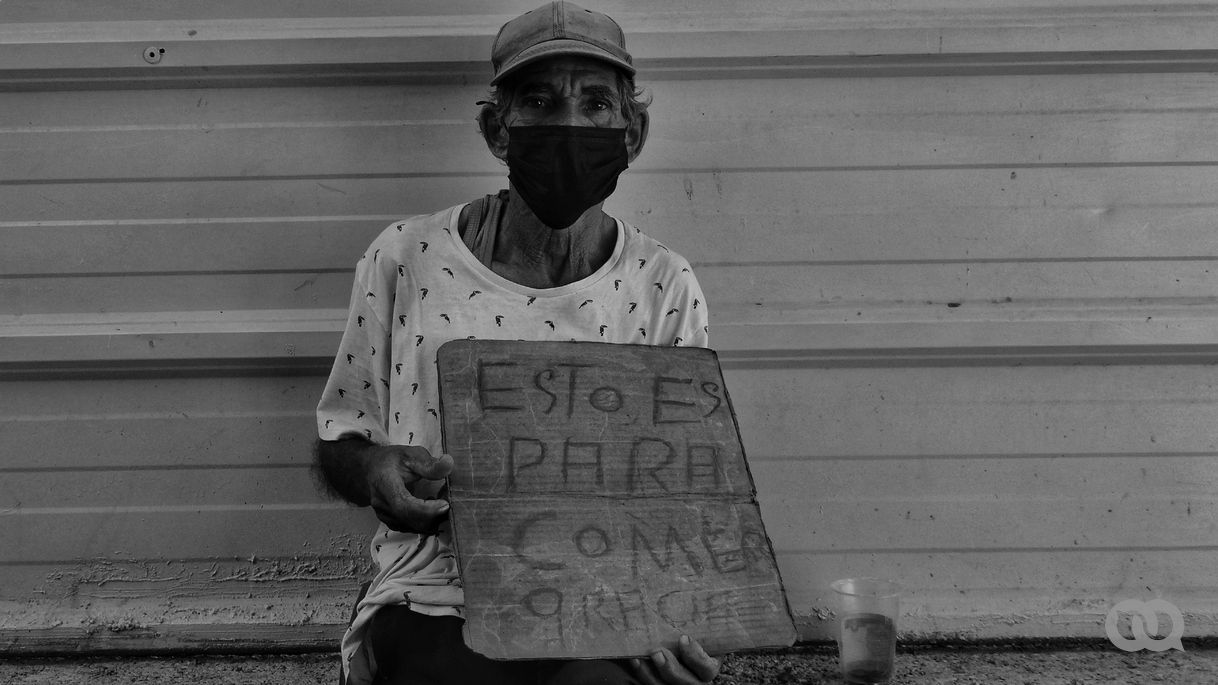 ESTO ES
PARA
COMER